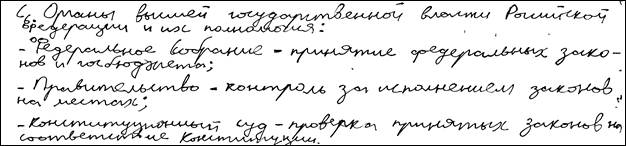 С. Органы высшей государственной власти Российской
Федерации и их полномочия:
- Федеральное собрание - принятие федеральных зако-
нов и госбюджета;
- Правительство - контроль за исполнением законов
на местах;
- Конституционный суд - проверка принятых законов на
соответствие Конституции.